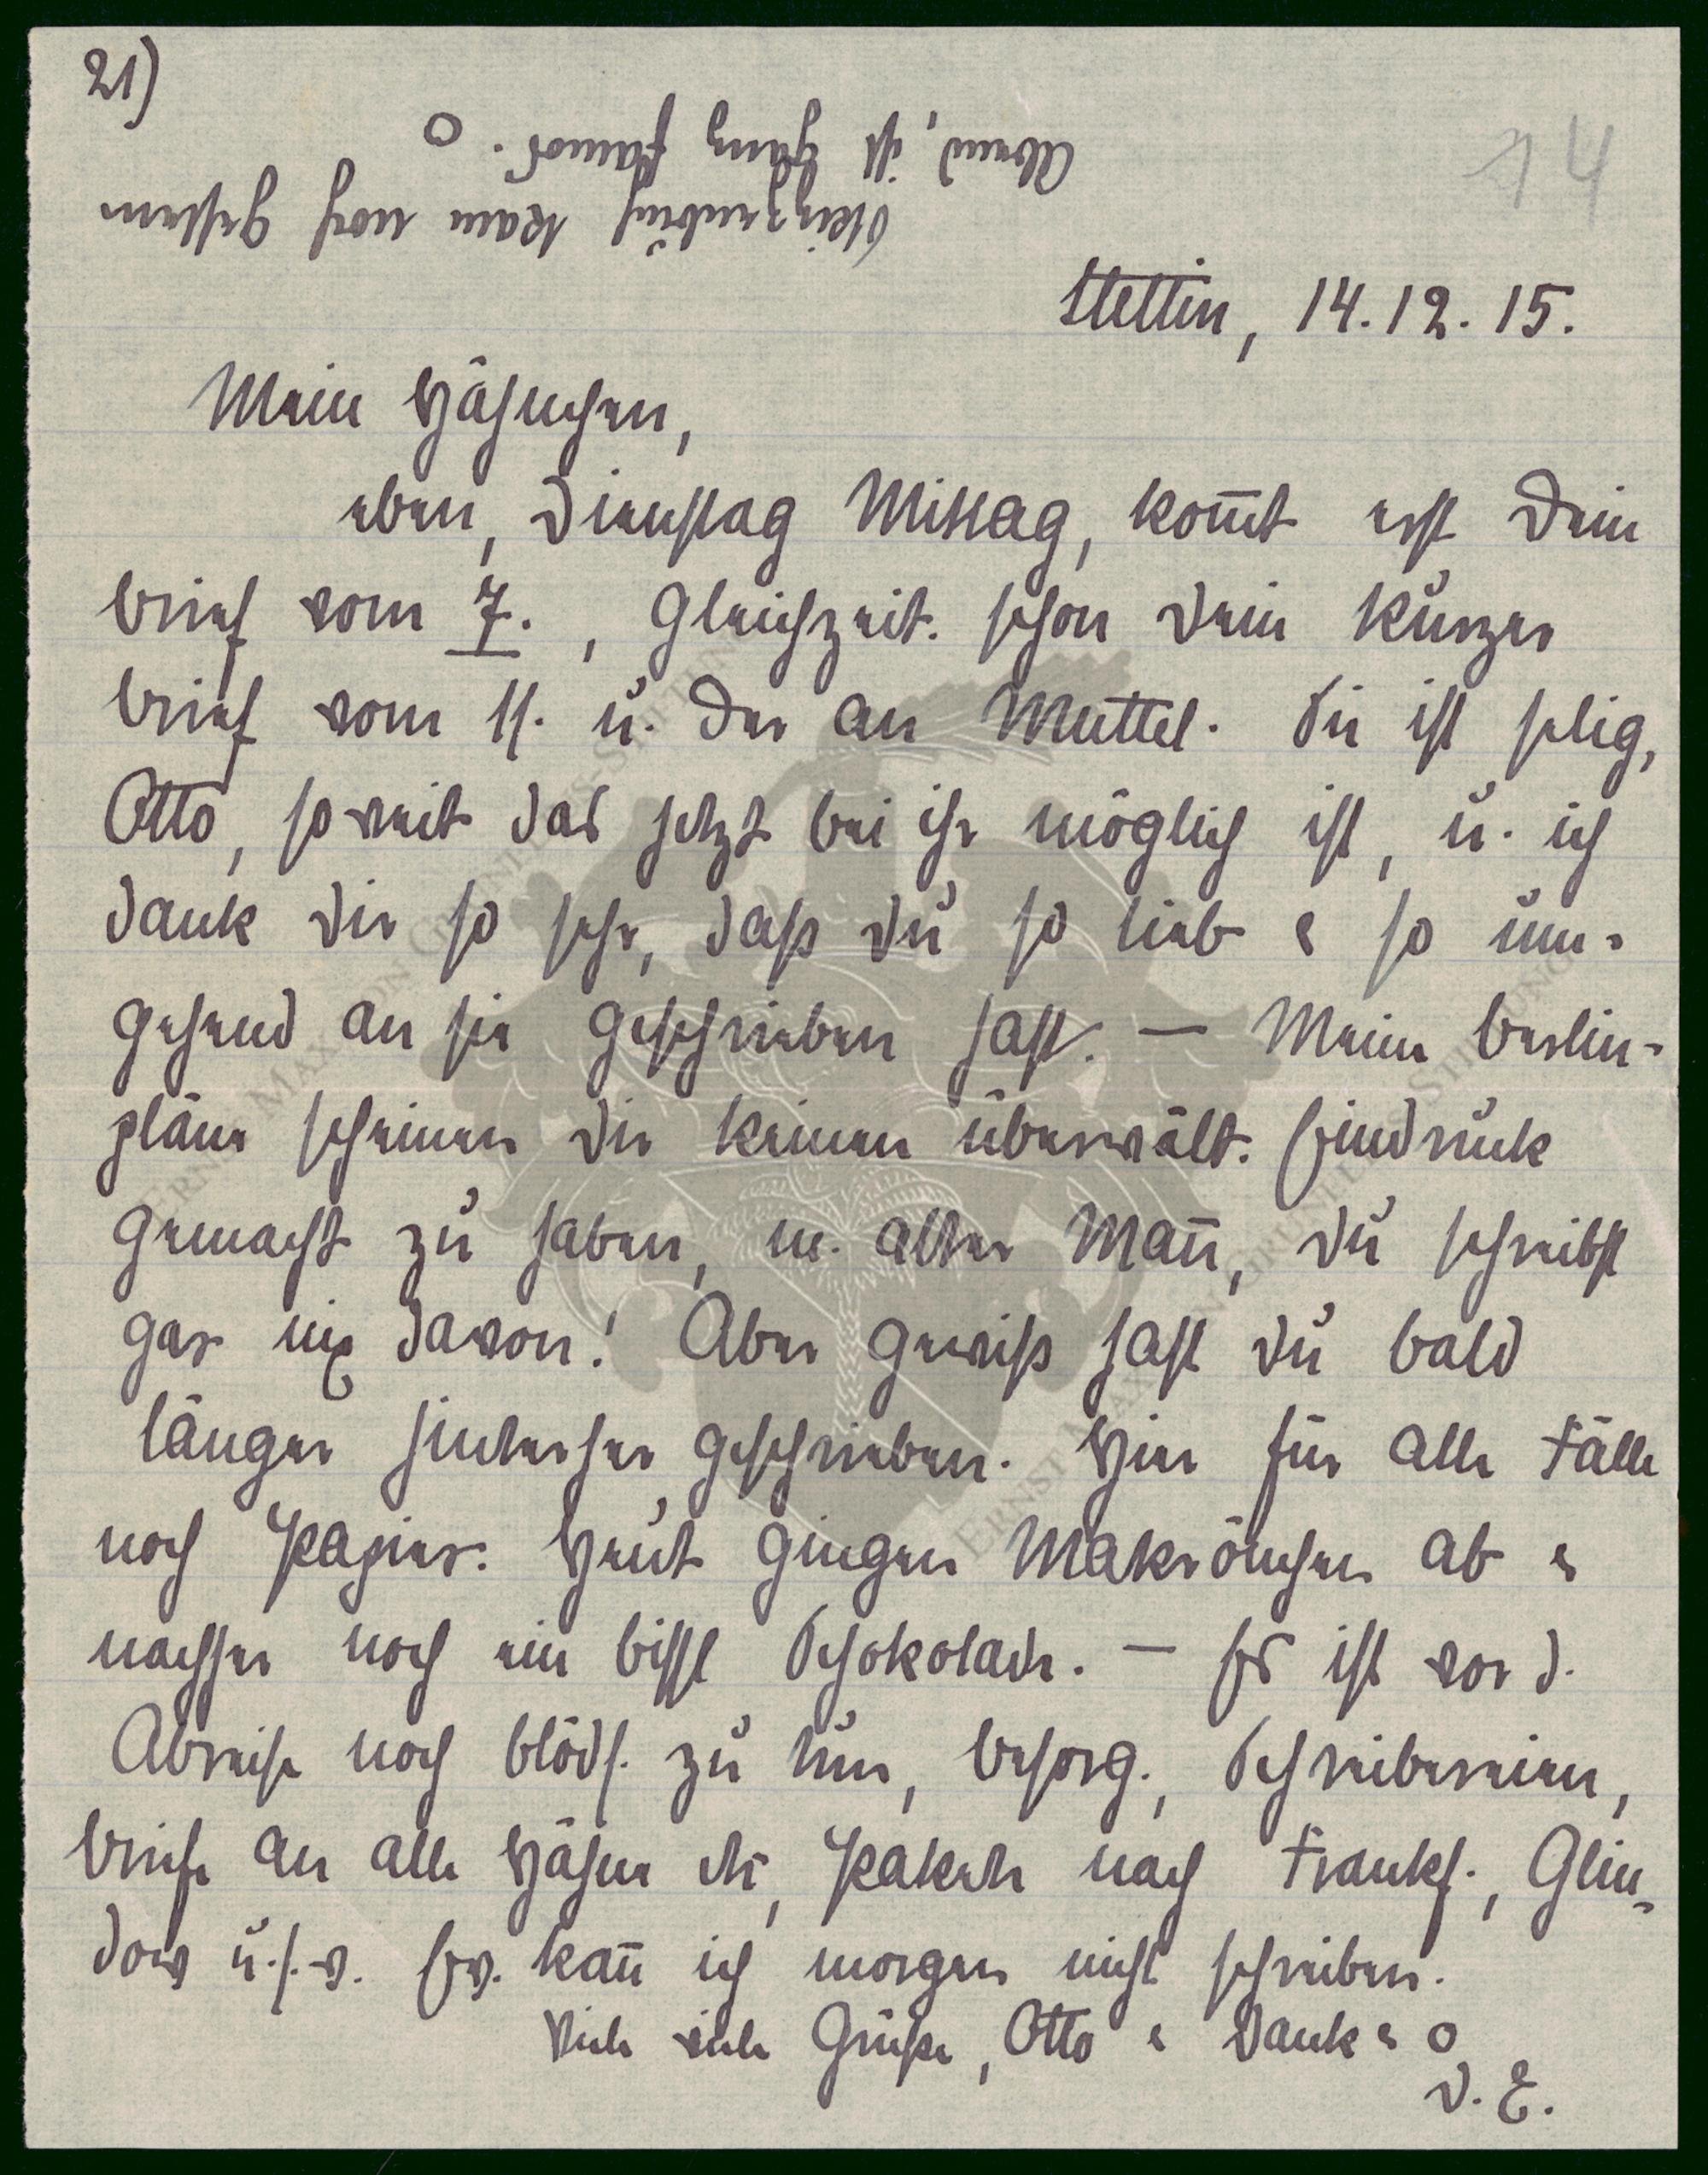 21)
14
Skizzenbuch kam noch gestern
Abend, ist ganz famos. O
Stettin, 14.12.15.
Mein Häschen,
eben, Dienstag Mittag, kom̅t erst Dein
Brief vom 7., gleichzeit. schon Dein kurzer
Brief vom 11. u. der an Muttel. Sie ist selig,
Otto, soweit das jetzt bei ihr möglich ist, u. ich
dank Dir so sehr, dass Du so lieb & so um-
gehend an sie geschrieben hast. — Meine Berlin-
pläne scheinen Dir keinen überwält. Eindruck
gemacht zu haben, m. alter Man̅, Du schreibst
gar nix davon! Aber gewiss hast Du bald
länger hinterher geschrieben. Hier für alle Fälle
noch Papier. Heut gingen Makrönchen ab &
nachher noch ein bissl Schokolade. — Es ist vor d.
Abreise noch blöds. zu tun, besorg., Schreibereien,
Briefe an alle Häsen etc, Pakete nach Frankf., Glin-
dow u.s.w. Ev. kan̅ ich morgen nicht schreiben.
Viele viele Grüße, Otto & Dank & O
D. E.
ERNST-MAX-VON-GRUNELIUS-STIFTUNG
ERNST-MAX-VON-GRUNELIUS-STIFTUNG